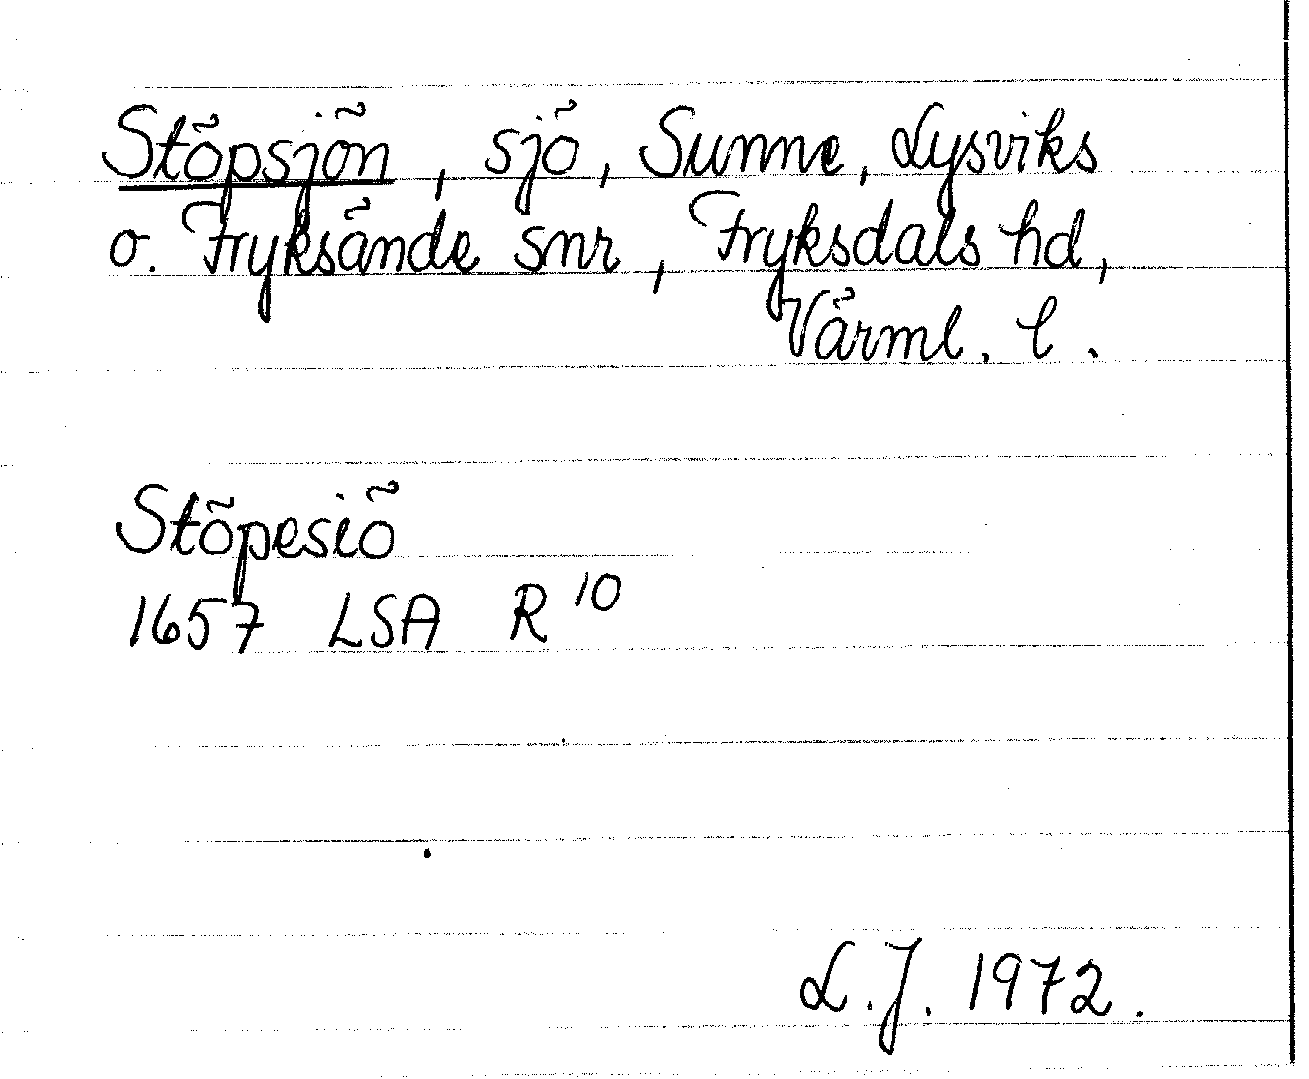 Stöpsjön, sjö, Sunne, Lysviks
o. Fryksände snr, Fryksdals hd,
Värml. l.
Stöpesiö
1657 LSA R 10
L.J. 1972.